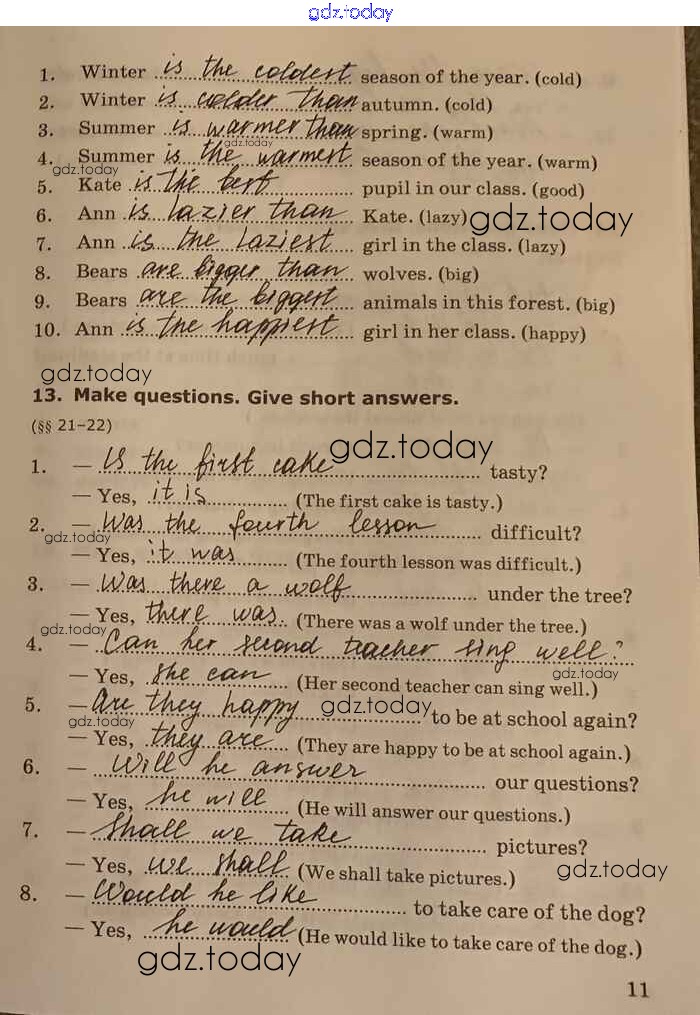 gdz.today
1. Winter is the coldest season of the year. (cold)
2. Winter is colder than autumn. (cold)
3. Summer is warmer than spring. (warm)
gdz.today
4. Summer is the warmest season of the year. (warm)
gdz.today
5. Kate is the best pupil in our class. (good)
6. Ann is lazier than Kate. (lazy) gdz.today
7. Ann is the laziest girl in the class. (lazy)
8. Bears are bigger than wolves. (big)
9. Bears are the biggest animals in this forest. (big)
10. Ann is the happiest girl in her class. (happy)
gdz.today
13. Make questions. Give short answers.
(§§ 21–22)
gdz.today
1. – Is the first cake tasty?
– Yes, it is (The first cake is tasty.)
2. – Was the fourth lesson difficult?
gdz.today
– Yes, it was (The fourth lesson was difficult.)
3. – Was there a wolf under the tree?
– Yes, there was (There was a wolf under the tree.)
gdz.today
4. – Can her second teacher sing well?
– Yes, she can (Her second teacher can sing well.)
gdz.today
5. – Are they happy to be at school again?
gdz.today gdz.today
– Yes, they are (They are happy to be at school again.)
6. – Will he answer our questions?
– Yes, he will (He will answer our questions.)
7. – Shall we take pictures?
– Yes, we shall (We shall take pictures.)
gdz.today
8. – Would he like to take care of the dog?
– Yes, he would (He would like to take care of the dog.)
gdz.today
11